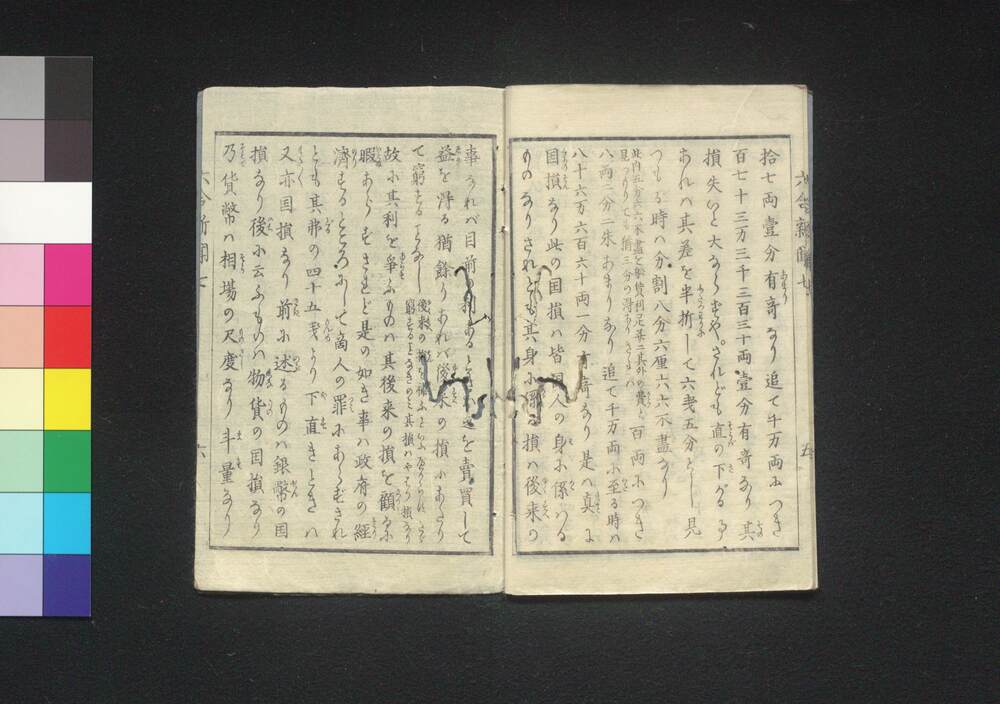 六合新聞 七
五
拾七両壹分有奇なり追て千万両につき
百七十三万三千三百三十両壹分有奇なり其
損失いと大ならずや。されども直の下がる事
あれハ其差を半折して六戔五分とし見
つもる時ハ分割八分六厘六六不盡なり
八両二分二朱あまりなり追て千万両に至る時ハ
八十六万六百六十両一分有奇なり是ハ真に
国損なり此の国損ハ皆国人の身に係ハる
ものなりされども其身に係る損ハ後来の
事なれバ目前の利ある を賣買して
益を得る猶餘りあれバ後来の損にあたり
て窮する
故に其利を爭ふものハ其後来の損を顧るに
暇あらずされど是の如き事ハ政府の經
濟するところにして商人の罪にあらずされ
ども其弗の四十五戔より下直きときハ
又亦国損なり前に述るものハ銀幣の国
損なり後に云ふものハ物貨の国損なり
乃貨幣ハ相場の尺度なり斗量なり
六合新聞 七
六